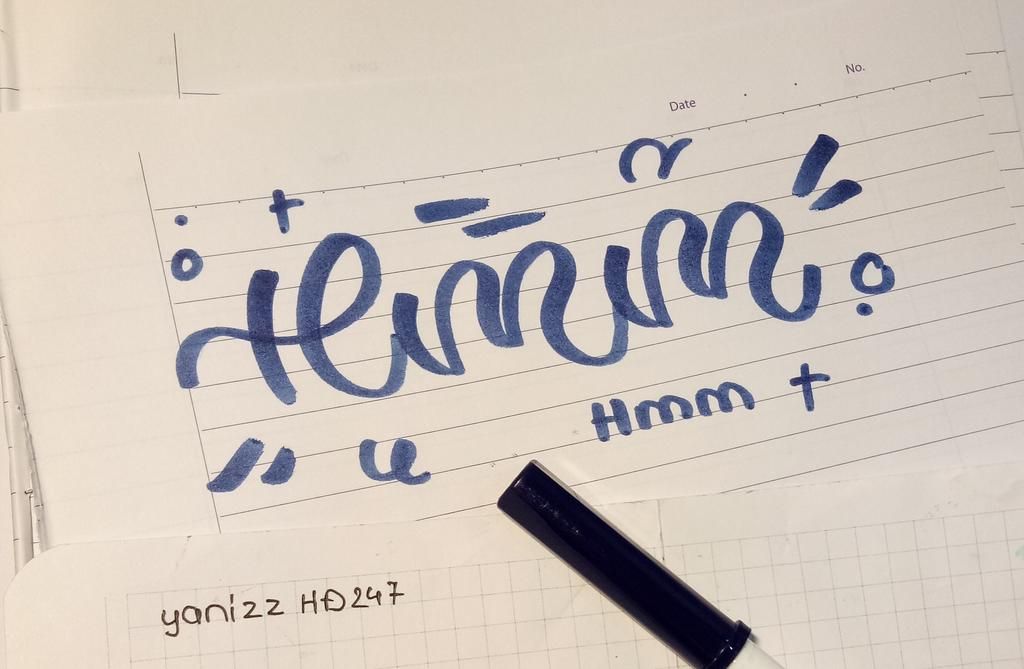 No.
Date
Hmm
Hmm
yanizz HĐ247